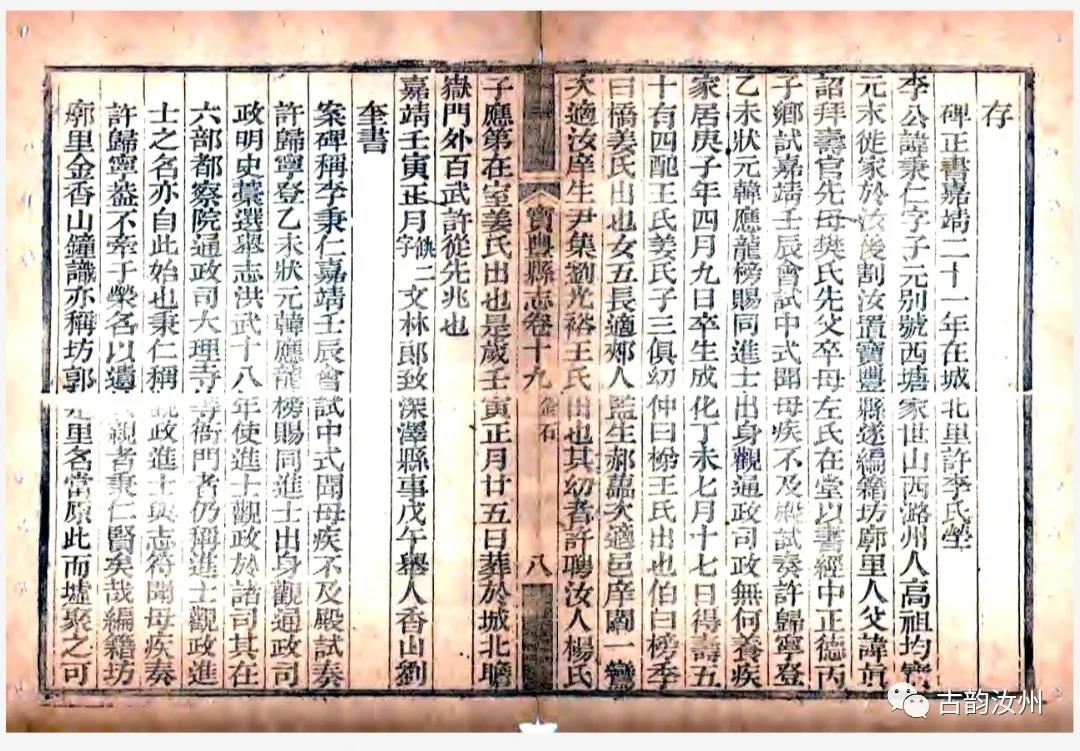 存
碑正書嘉靖二十一年在城北里許李氏塋
李公諱秉仁字子元別號西塘家世山西潞州人高祖均寶
元末徙家於汝後割汝置寶豐縣遂編籍坊廓里人父諱真
詔拜壽官先母樊氏先父卒母左氏在堂以書經中正德丙
子鄉試嘉靖壬辰會試中式聞母疾不及殿試奏許歸寧登
乙未狀元韓應龍榜賜同進士出身觀通政司政無何養疾
家居庚子年四月九日卒生成化丁未七月十七日得壽五
十有四配王氏姜氏子三俱幼仲曰榜王氏出也伯曰榜季
曰橋姜氏出也女五長適郟人監生郝嘉次適邑庠閻一鸞
次適汝庠生尹集劉光裕王氏出也其幼者許聘汝人楊氏
子應第在室姜氏出也是歲壬寅正月廿五日葬於城北瞻
嶽門外百武許從先兆也
嘉靖壬寅正月缺二字文林郎致深澤縣事戊午舉人香山劉
奎書
案碑稱李秉仁嘉靖壬辰會試中式聞母疾不及殿試奏
許歸寧登乙未狀元韓應龍榜賜同進士出身觀通政司
政明史藁選舉志洪武十八年使進士觀政於諸司其在
六部都察院通政司大理寺等衙門者仍稱進士觀政進
士之名亦自此始也秉仁稱觀政進士與志符聞母疾奏
許歸寧葢不牽于榮名以遺親者秉仁賢矣哉編籍坊
廓里金香山鐘識亦稱坊郭是里名當原此而墟聚之可
寶豐縣志卷十九 金石 八
古韵汝州